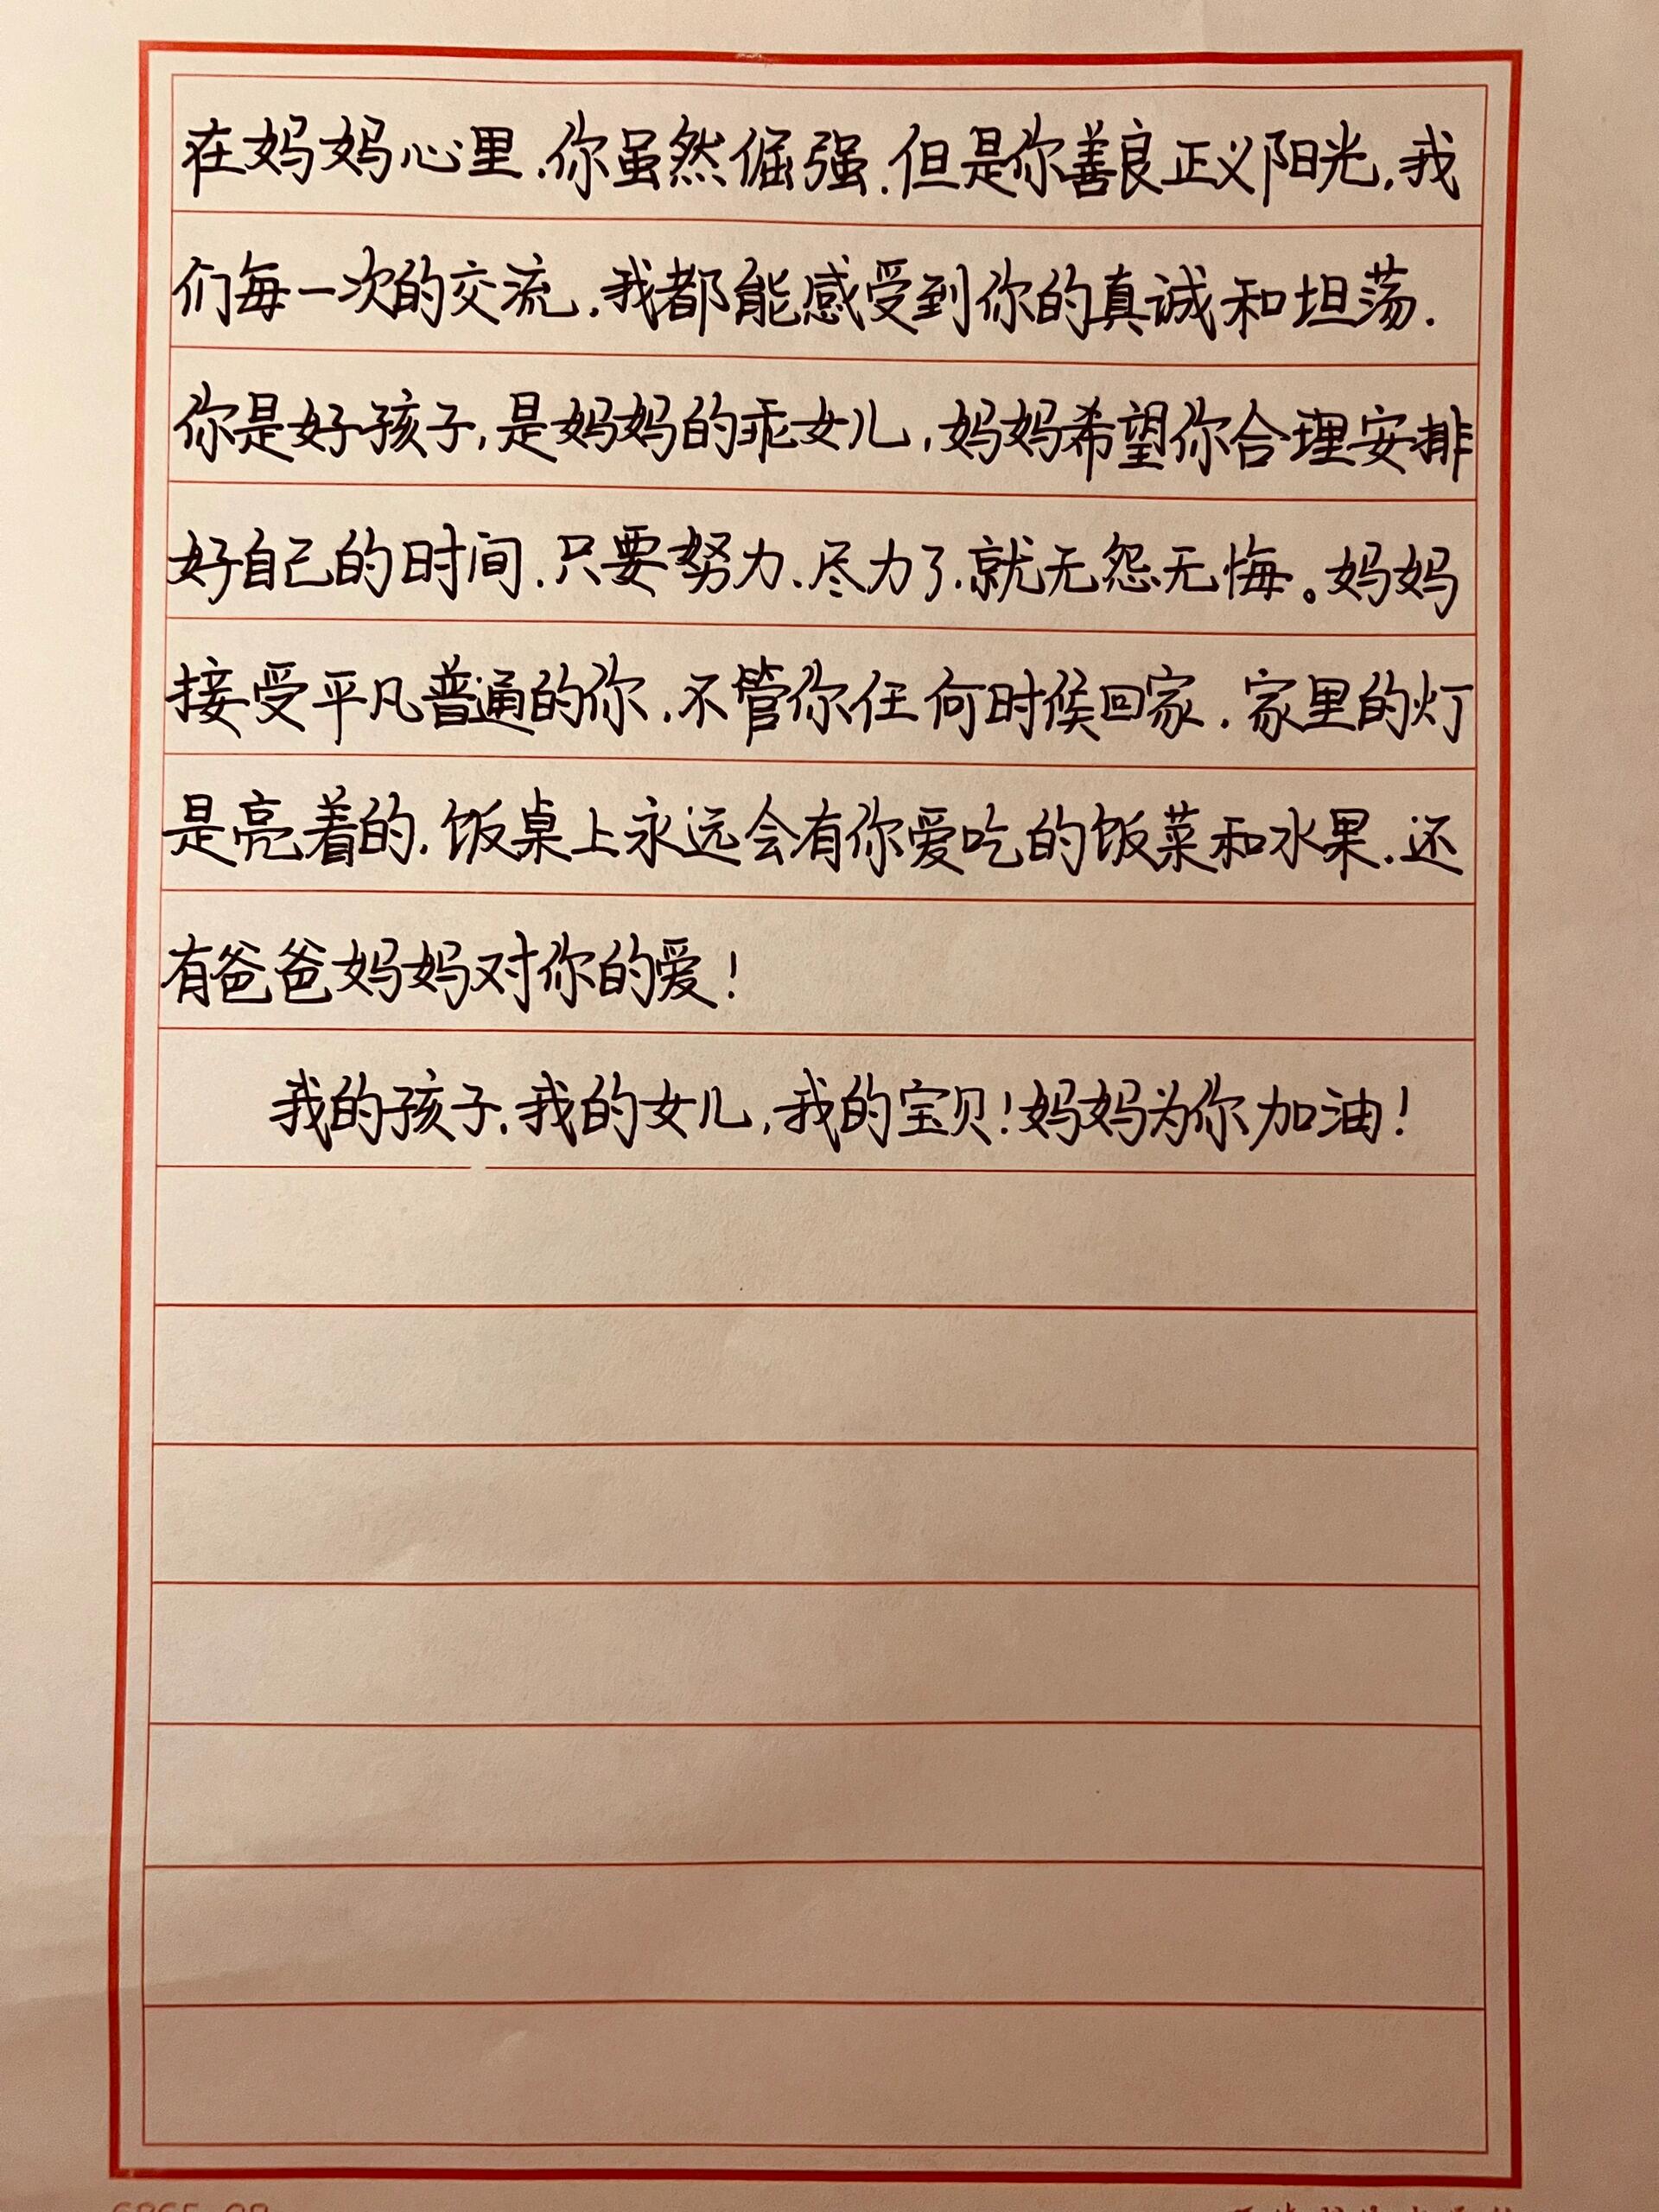 在妈妈心里.你虽然倔强.但是你善良正义阳光,我
们每一次的交流,我都能感受到你的真诚和坦荡.
你是好孩子,是妈妈的乖女儿,妈妈希望你合理安排
好自己的时间.只要努力、尽力了.就无怨无悔。妈妈
接受平凡普通的你.不管你任何时候回家.家里的灯
是亮着的.饭桌上永远会有你爱吃的饭菜和水果.还
有爸爸妈妈对你的爱!
我的孩子.我的女儿,我的宝贝!妈妈为你加油!